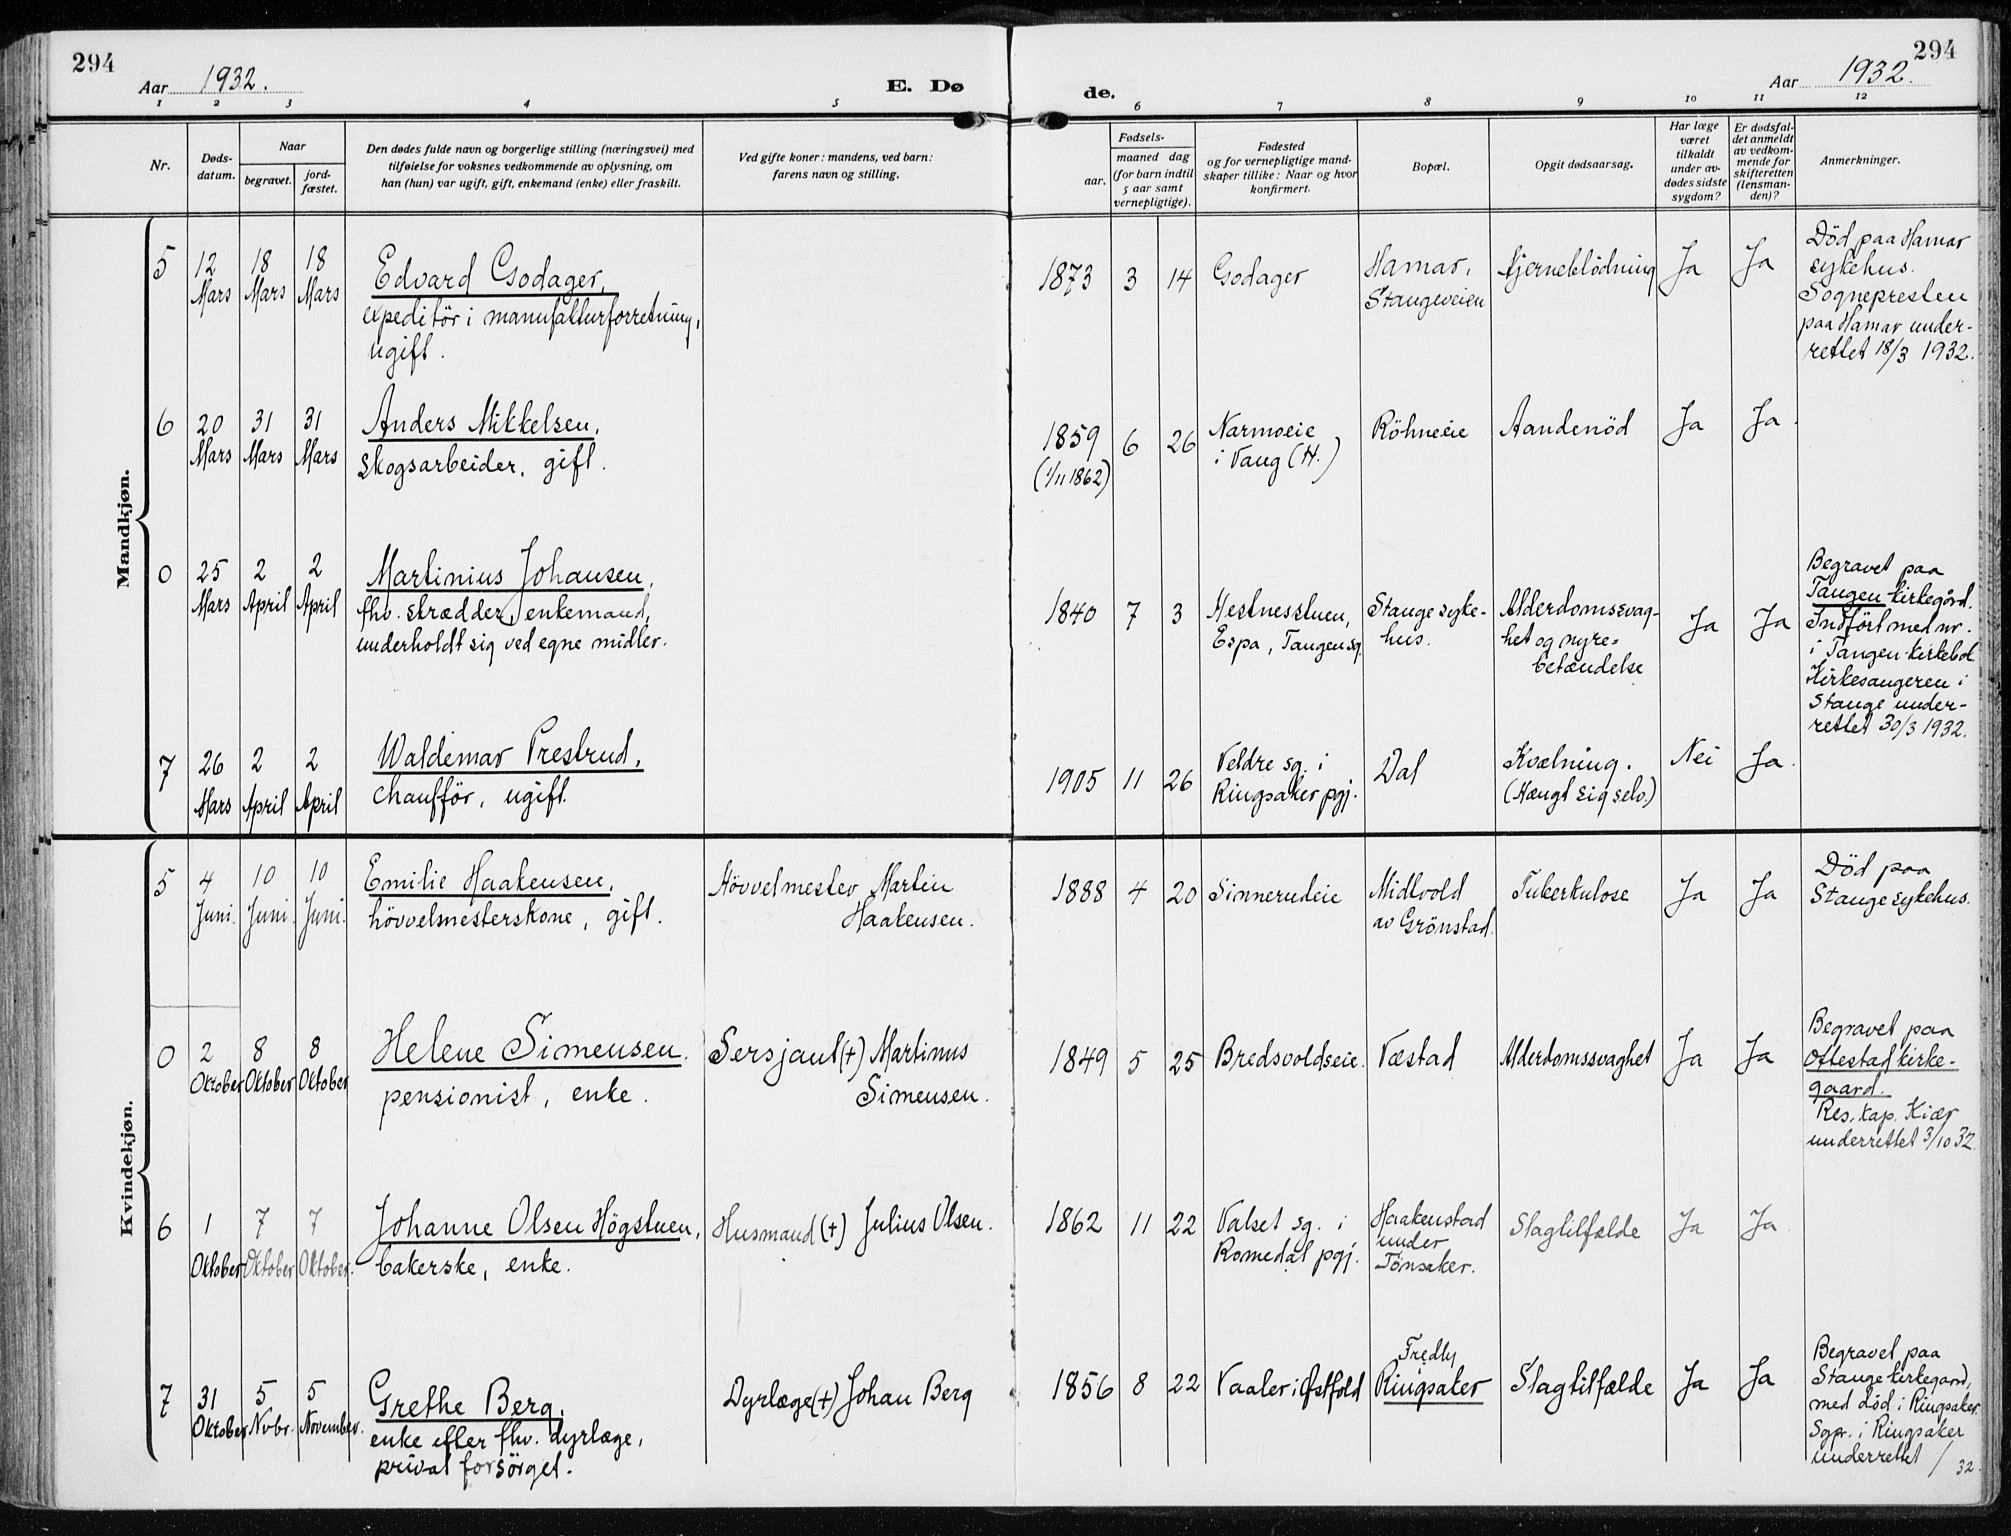 294
Aar 1932.
E. Dø
de.
Aar 1932.
294
1 2 3 4 5 6 7 8 9 10 11 12
Nr.
Døds-
datum.
Naar
begravet.
jord-
fæstet.
Den dødes fulde navn og borgerlige stilling (næringsvei) med
tilføielse for voksnes vedkommende av oplysning, om
han (hun) var ugift, gift, enkemand (enke) eller fraskilt.
Ved gifte koner: mandens, ved barn:
farens navn og stilling.
Fødsels-
aar.
maaned dag
(for barn indtil
5 aar samt
vernepligtige).
Fødested
og for vernepligtige mand-
skaper tillike: Naar og hvor
konfirmert.
Bopæl.
Opgit dødsaarsag.
Har læge
været
tilkaldt
under av-
dødes sidste
sygdom?
Er dødsfal-
det anmeldt
av vedkom-
mende for
skifteretten
(lensman-
den)?
Anmerkninger.
Mandkjøn.
5
12
Mars
18
Mars
18
Mars
Edvard Gsodager,
expeditör i manufakturforretning,
ugift.
1873 3 14
Gsodager
Hamar,
Stangeveien
Hjerneblödning
Ja
Ja
Död paa Hamar
sykehus.
Sognepresten
paa Hamar under-
rettet 18/3 1932.
6
20
Mars
31
Mars
31
Mars
Anders Mikkelsen,
skogsarbeider, gift.
1859 6 26
(1/11 1862)
Narmoeie
i Vang (H.)
Röhneeie
Aandenöd
Ja
Ja.
0
25
Mars
2
April
2
April
Martinius Johansen,
fhv. skrædder, enkemand,
underholdt sig ved egne midler.
1840 7 3
Hestnesstuen,
Espa, Tangen sg.
Stange syke-
hus.
Alderdomssvag-
het og nyre-
betændelse
Ja
Ja
Begravet paa
Tangen kirkegård.
Indført med nr.
i Tangen kirkebok
Kirkesangeren i
Stange under-
rettet 30/3 1932.
7
26
Mars
2
April
2
April
Waldemar Prestrud,
chaufför, ugift.
1905 11 26
Veldre sg. i
Ringsaker pgj.
Dal
Kvælning.
(Hængt sig selv.)
Nei
Ja.
Kvindekjøn.
5
4
Juni.
10
Juni.
10
Juni.
Emilie Haakensen,
hövvelmesterskone, gift.
Hövvelmester Martin
Haakensen.
1888 4 20
Sinnerudeie
Midtvold
av Grönstad.
Tuberkulose
Ja
Ja
Död paa
Stange sykehus.
0
2
Oktober
8
Oktober
8
Oktober
Helene Simensen.
pensionist, enke.
Sersjant (+) Martinus
Simensen.
1849 5 25
Bredsvoldseie.
Væstad
Alderdomssvaghet
Ja
Ja
Begravet paa
Ottestad kirke-
gaard.
Res. kap. Kiær
underrettet 3/10 32.
6
1
Oktober
7
Oktober
7
Oktober.
Johanne Olsen Högstuen,
bakerske, enke.
Husmand (+) Julius Olsen.
1862 11 22
Valset sg. i
Romedal pgj.
Haakenstad
under
Tönsaker.
Slagtilfælde
Ja
Ja
7
31
Oktober
5
Nvbr.
5
November.
Grethe Berg,
enke efter fhv. dyrlæge,
privat forsörget.
Dyrlæge (+) Johan Berg
1856 8 22
Vaaler i Østfold
Fredly
Ringsaker
Slagtilfælde
Ja
Ja
Begravet paa
Stange kirkegaard,
med död i Ringsaker.
Sgpr. i Ringsaker
underrettet / 32.